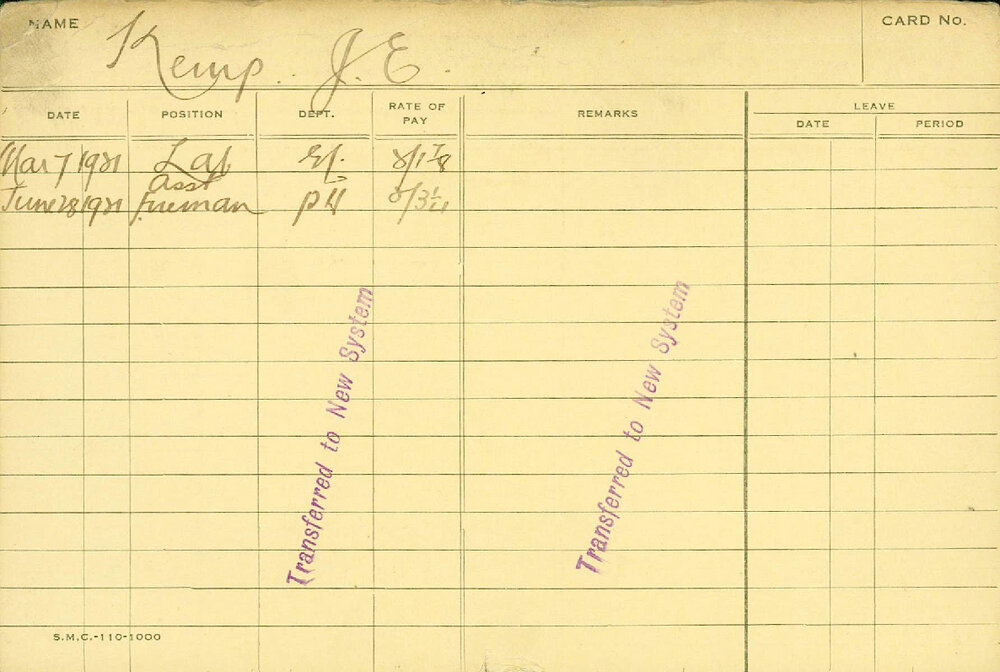 NAME Kemp. J. E. CARD No.
LEAVE
DATE POSITION DEPT. RATE OF PAY REMARKS DATE PERIOD
Mar 7 1921 Lab
Asst
June 28 1921 fireman PH
Transferred to New System
Transferred to New System
S.M.C.-110-1000